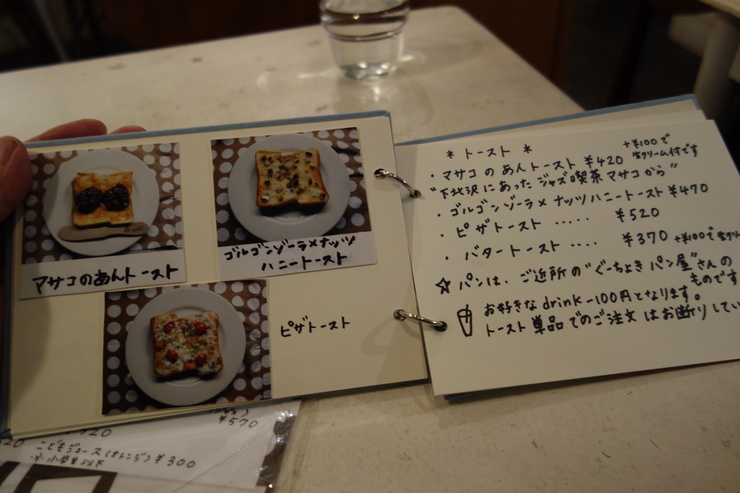 マサコのあんトースト
ゴルゴンゾーラ×ナッツ
ハニートースト
ピザトースト
* トースト *
・マサコのあんトースト ¥420 +¥100で
生クリーム付です
"下北沢にあったジャズ喫茶マサコから"
・ゴルゴンゾーラ×ナッツハニートースト ¥470
・ピザトースト ..... ¥520
・バタートースト .... ¥370 +¥100で
☆パンは、ご近所の"ぐーちょきパン屋"さんの
ものです
お好きなdrink-100円となります。
トースト単品でのご注文はお断りしてい
¥570
こどもジュース(オレンジ) ¥300
※小学生以下